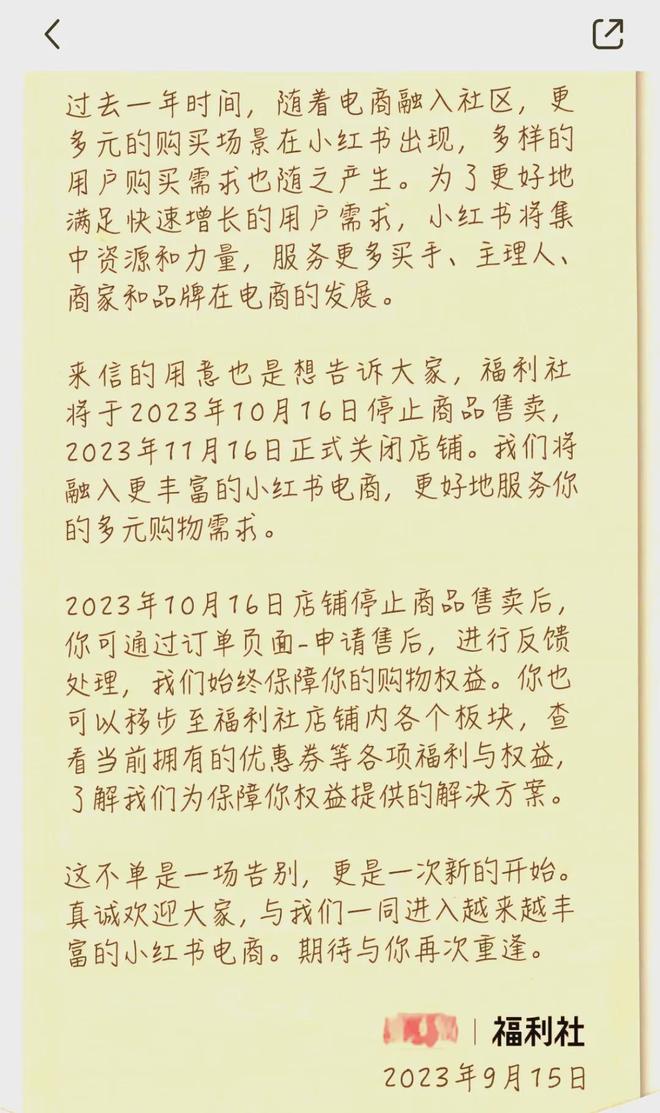 过去一年时间，随着电商融入社区，更
多元的购买场景在小红书出现，多样的
用户购买需求也随之产生。为了更好地
满足快速增长的用户需求，小红书将集
中资源和力量，服务更多买手、主理人、
商家和品牌在电商的发展。
来信的用意也是想告诉大家，福利社
将于2023年10月16日停止商品售卖，
2023年11月16日正式关闭店铺。我们将
融入更丰富的小红书电商，更好地服务你
的多元购物需求。
2023年10月16日店铺停止商品售卖后，
你可通过订单页面-申请售后，进行反馈
处理，我们始终保障你的购物权益。你也
可以移步至福利社店铺内各个板块，查
看当前拥有的优惠券等各项福利与权益，
了解我们为保障你权益提供的解决方案。
这不单是一场告别，更是一次新的开始。
真诚欢迎大家，与我们一同进入越来越丰
富的小红书电商。期待与你再次重逢。
| 福利社
2023年9月15日